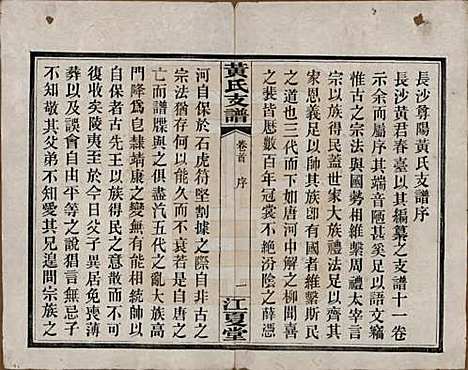 長沙尊陽黃氏支譜序
長沙黃君春臺以其編纂之支譜十一卷
示余而屬序其端音陋甚奚足以語文竊
惟古之宗法與國勢相維繫周禮太宰言
宗以族得民蓋世家大族禮法足以齊其
家恩義足以帥其族即有國者維繫斯民
之道也三代而下如唐河中解之柳聞喜
之裴皆歷數百年冠裳不絶汾陰之薛憑
黃氏支譜
卷首 序
一
江夏堂
河自保於石虎苻堅割據之際自非古之
宗法猶存何以能久而不衰若是自唐之
亡而譜牒與之俱盡汽五代之亂大族高
門降為皂隸靖康之變無有能相統帥以
自保者古先王以族得民之柄上與下交
復收矣陵夷至於今日父子異居免喪薄
也以及談會自由平等之說猖言無忌子
不知敬其父弟不知愛其兄遑問宗族之